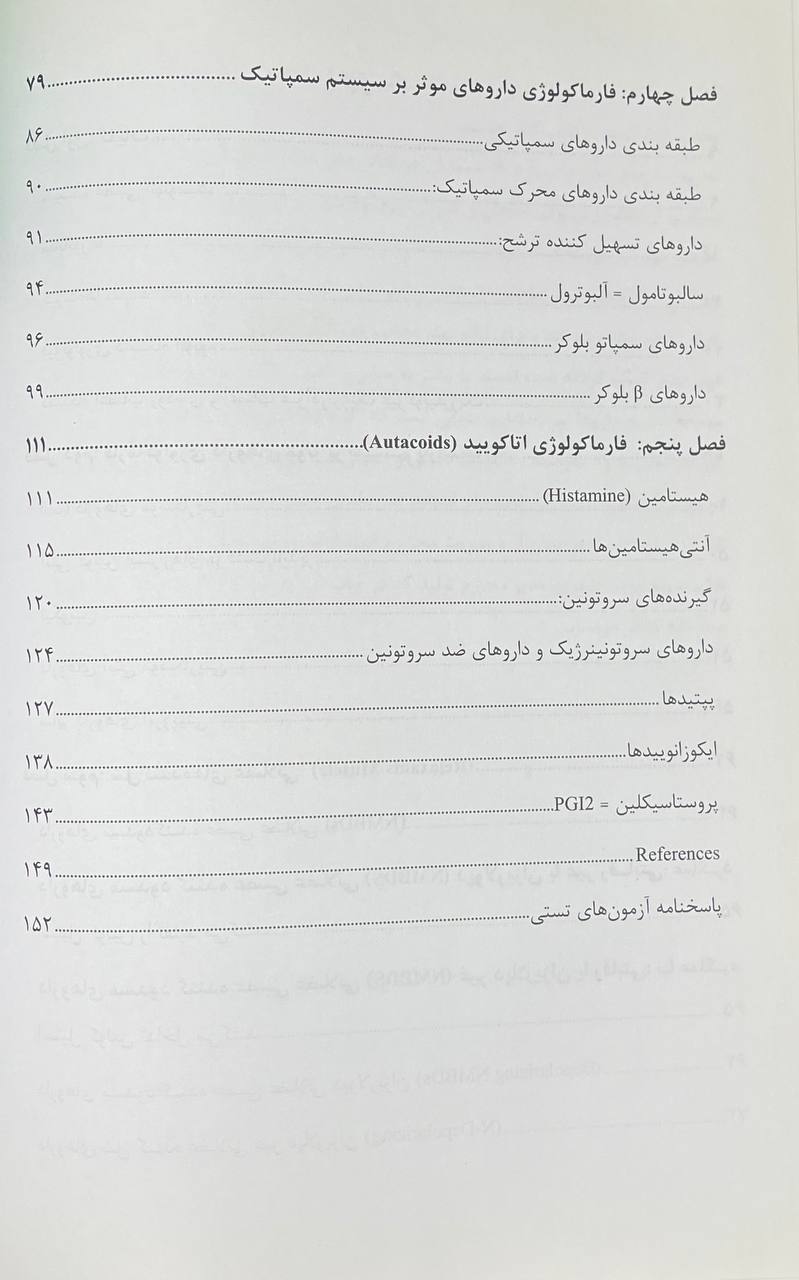 فصل چهارم: فارماکولوژی داروهای موثر بر سیستم سمپاتیک ........ ۷۹
طبقه بندی داروهای سمپاتیکی ........ ۸۶
طبقه بندی داروهای محرک سمپاتیک: ........ ۹۰
داروهای تسهیل کننده ترشح: ........ ۹۱
سالبوتامول = آلبوترول ........ ۹۴
داروهای سمپاتو بلوکر ........ ۹۶
داروهای β بلوکر ........ ۹۹
فصل پنجم: فارماکولوژی اتاکویید (Autacoids) ........ ۱۱۱
هیستامین (Histamine) ........ ۱۱۱
آنتی‌هیستامین‌ها ........ ۱۱۵
گیرنده‌های سروتونین: ........ ۱۲۰
داروهای سروتونینرژیک و داروهای ضد سروتونین ........ ۱۲۴
پپتیدها ........ ۱۲۷
ایکوزانوییدها ........ ۱۳۸
پروستاسیکلین = PGI2 ........ ۱۴۳
References ........ ۱۴۹
پاسخنامه آزمون‌های تستی ........ ۱۵۲